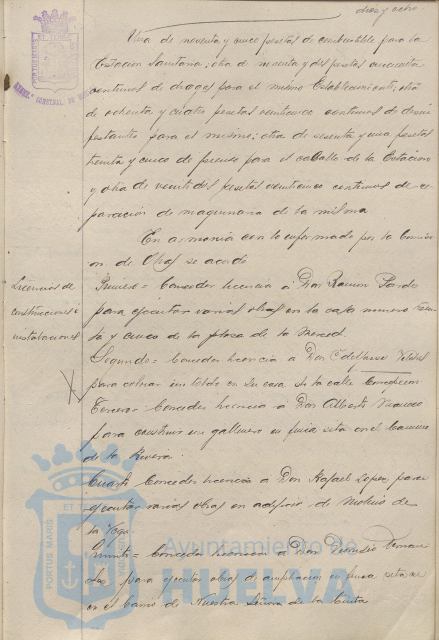 diez y ocho
Una de noventa y cinco pesetas de combustible para la
Estación Sanitaria; otra de noventa y dos pesetas cincuenta
centimos de drogas para el mismo Establecimiento; otra
de ochenta y cuatro pesetas veinticinco centimos de desin
fectantes para el mismo; otra de sesenta y una pesetas
treinta y cinco de pienso para el caballo de la Estación
y otra de veintidos pesetas veinticinco centimos de re
paración de maquinaria de la misma
En armonia con lo informado por la Comisi
on de Obras se acordó
Licencias de
construcciones é
instalaciones
Primero = Conceder licencia á Don Ramon Pardo
para ejecutar varias obras en la casa numero
y cinco de la plaza de la Merced.
Segundo = Conceder licencia á Don
para colocar un toldo en su casa de la calle Concepcion
Tercero = Conceder licencia á Don Alberto
para construir un gallinero en finca sita en el Camino
de la Rivera.
Cuarto Conceder licencia á Don Rafael Lopez, para
ejecutar varias obras en edificio de Molino de
la Vega.
Quinto = Conceder licencia á Don Dionisio Fernan
dez para ejecutar obras de ampliacion en finca sita
en el Barrio de Nuestra Señora de la Cinta
Ayuntamiento de
HUELVA
PORTUS MARIS
ET TERRÆ